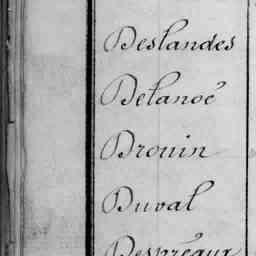 Deslandes
Delanoë
Drouin
Duval
Despréaux